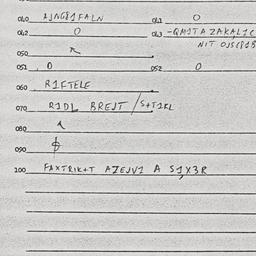 040 AJNG8IFALN 041 0
042 0 043 -QMITA ZAKALIC
NIT
050
051 0 052 0
060 RIFTELE
070 RIDL BREJT /S+TIKL
080
090
100 FAXTRIK+T AZEJVI A SIX3R